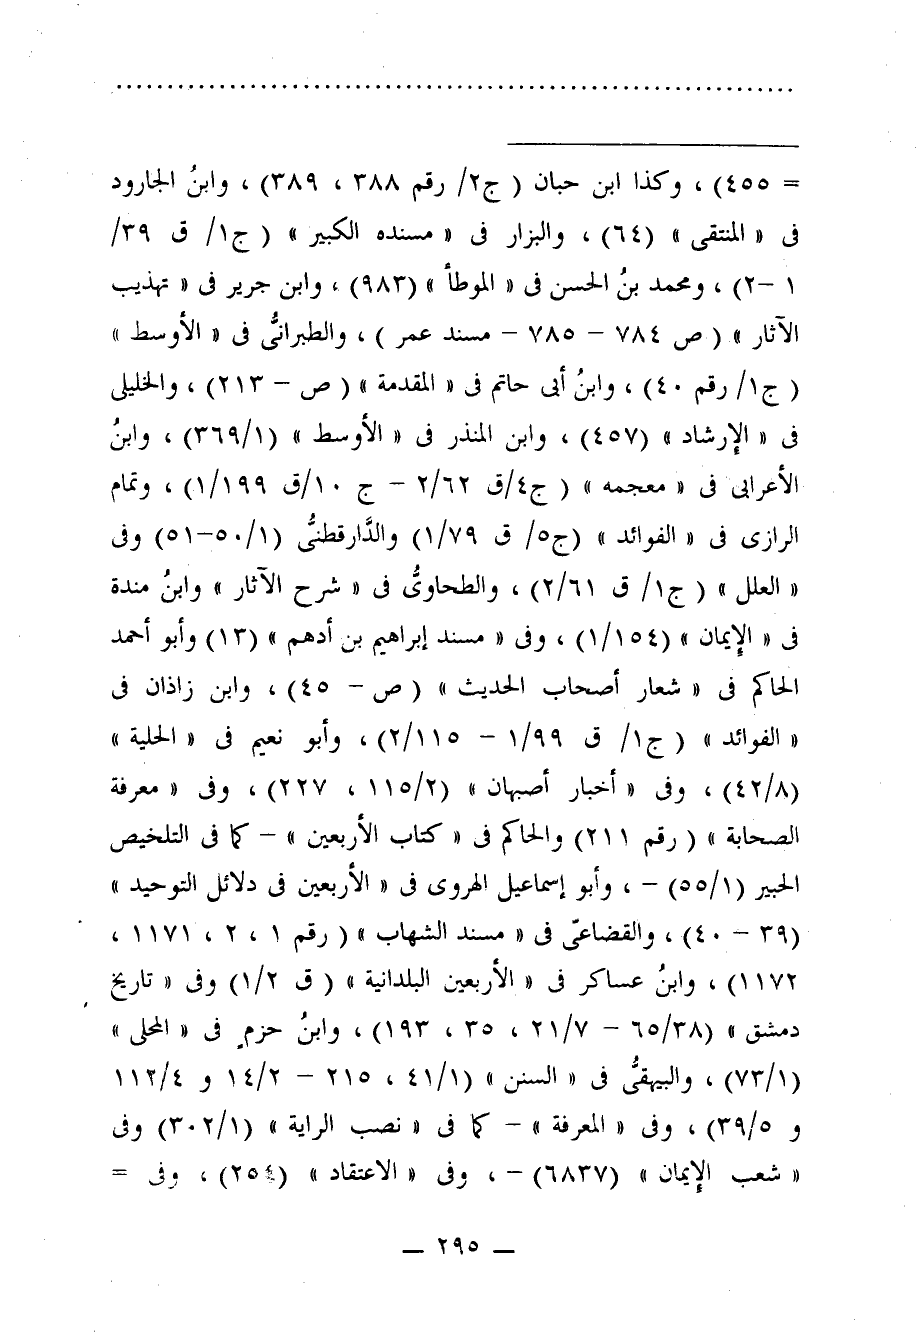 = ٤٥٥) ، وكذا ابن حبان ( ج٢/ رقم ٣٨٨ ، ٣٨٩) ، وابنُ الجارود
فى « المنتقى » (٦٤) ، والبزار فى « مسنده الكبير » ( ج١/ ق ٣٩/
١ -٢) ، ومحمد بنُ الحسن فى « الموطأ » (٩٨٣) ، وابن جرير فى « تهذيب
الآثار » ( ص ٧٨٤ - ٧٨٥ - مسند عمر ) ، والطبرانىُّ فى « الأوسط »
( ج١/ رقم ٤٠) ، وابنُ أبى حاتم فى « المقدمة » ( ص - ٢١٣) ، والخليلى
فى « الإرشاد » (٤٥٧) ، وابن المنذر فى « الأوسط » (٣٦٩/١) ، وابنُ
الأعرابى فى « معجمه » ( ج٤/ق ٢/٦٢ - ج ١٠/ق ١/١٩٩) ، وتمام
الرازى فى « الفوائد » (ج٥/ ق ١/٧٩) والدَّارقطنىُّ (٥٠/١-٥١) وفى
« العلل » ( ج١/ ق ٢/٦١) ، والطحاوىُّ فى « شرح الآثار » وابنُ مندة
فى « الإيمان » (١/١٥٤) ، وفى « مسند إبراهيم بن أدهم » (١٣) وأبو أحمد
الحاكم فى « شعار أصحاب الحديث » ( ص - ٤٥) ، وابن زاذان فى
« الفوائد » ( ج١/ ق ١/٩٩ - ٢/١١٥) ، وأبو نعيم فى « الحلية »
(٤٢/٨) ، وفى « أخبار أصبهان » (١١٥/٢ ، ٢٢٧) ، وفى « معرفة
الصحابة » ( رقم ٢١١) والحاكم فى « كتاب الأربعين » - كما فى التلخيص
الحبير (٥٥/١) - ، وأبو إسماعيل الهروى فى « الأربعين فى دلائل التوحيد »
(٣٩ - ٤٠) ، والقضاعىّ فى « مسند الشهاب » ( رقم ١ ، ٢ ، ١١٧١ ،
١١٧٢) ، وابنُ عساكر فى « الأربعين البلدانية » ( ق ١/٢) وفى « تاريخ
دمشق » (٦٥/٣٨ - ٢١/٧ ، ٣٥ ، ١٩٣) ، وابنُ حزمٍ فى « المحلى »
(٧٣/١) ، والبيهقىُّ فى « السنن » (٤١/١ ، ٢١٥ - ١٤/٢ و ١١٢/٤
و ٣٩/٥) ، وفى « المعرفة » - كما فى « نصب الراية » (٣٠٢/١) وفى
« شعب الإيمان » (٦٨٣٧) - ، وفى « الاعتقاد » (٢٥٤) ، وفى =
— ٢٩٥ —